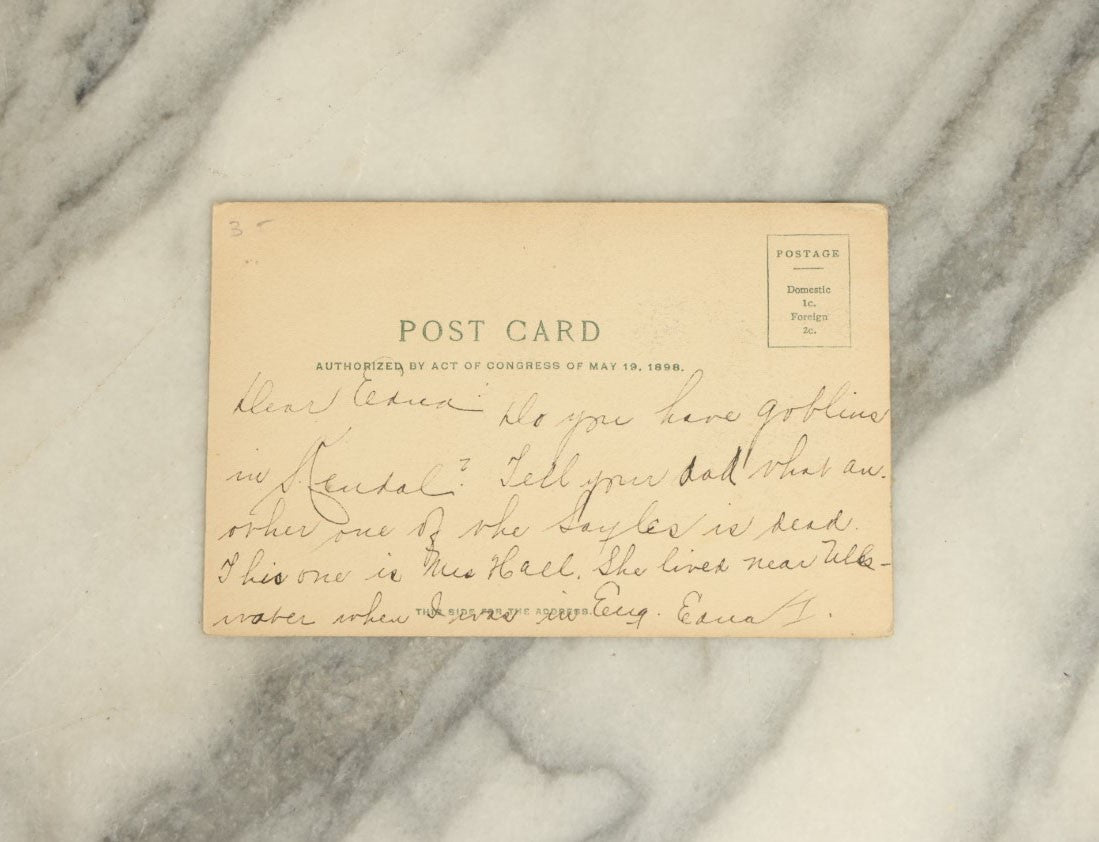 3 -
POSTAGE
Domestic
1c.
Foreign
2c.
POST CARD
AUTHORIZED BY ACT OF CONGRESS OF MAY 19, 1898.
Dear Edna: Do you have goblins
in Kendal? Tell your dad that an-
other one of the Sayles is dead.
This one is Mrs Hall. She lived near Ulls-
water when I was in Eng. Edna I.
THIS SIDE FOR THE ADDRESS.